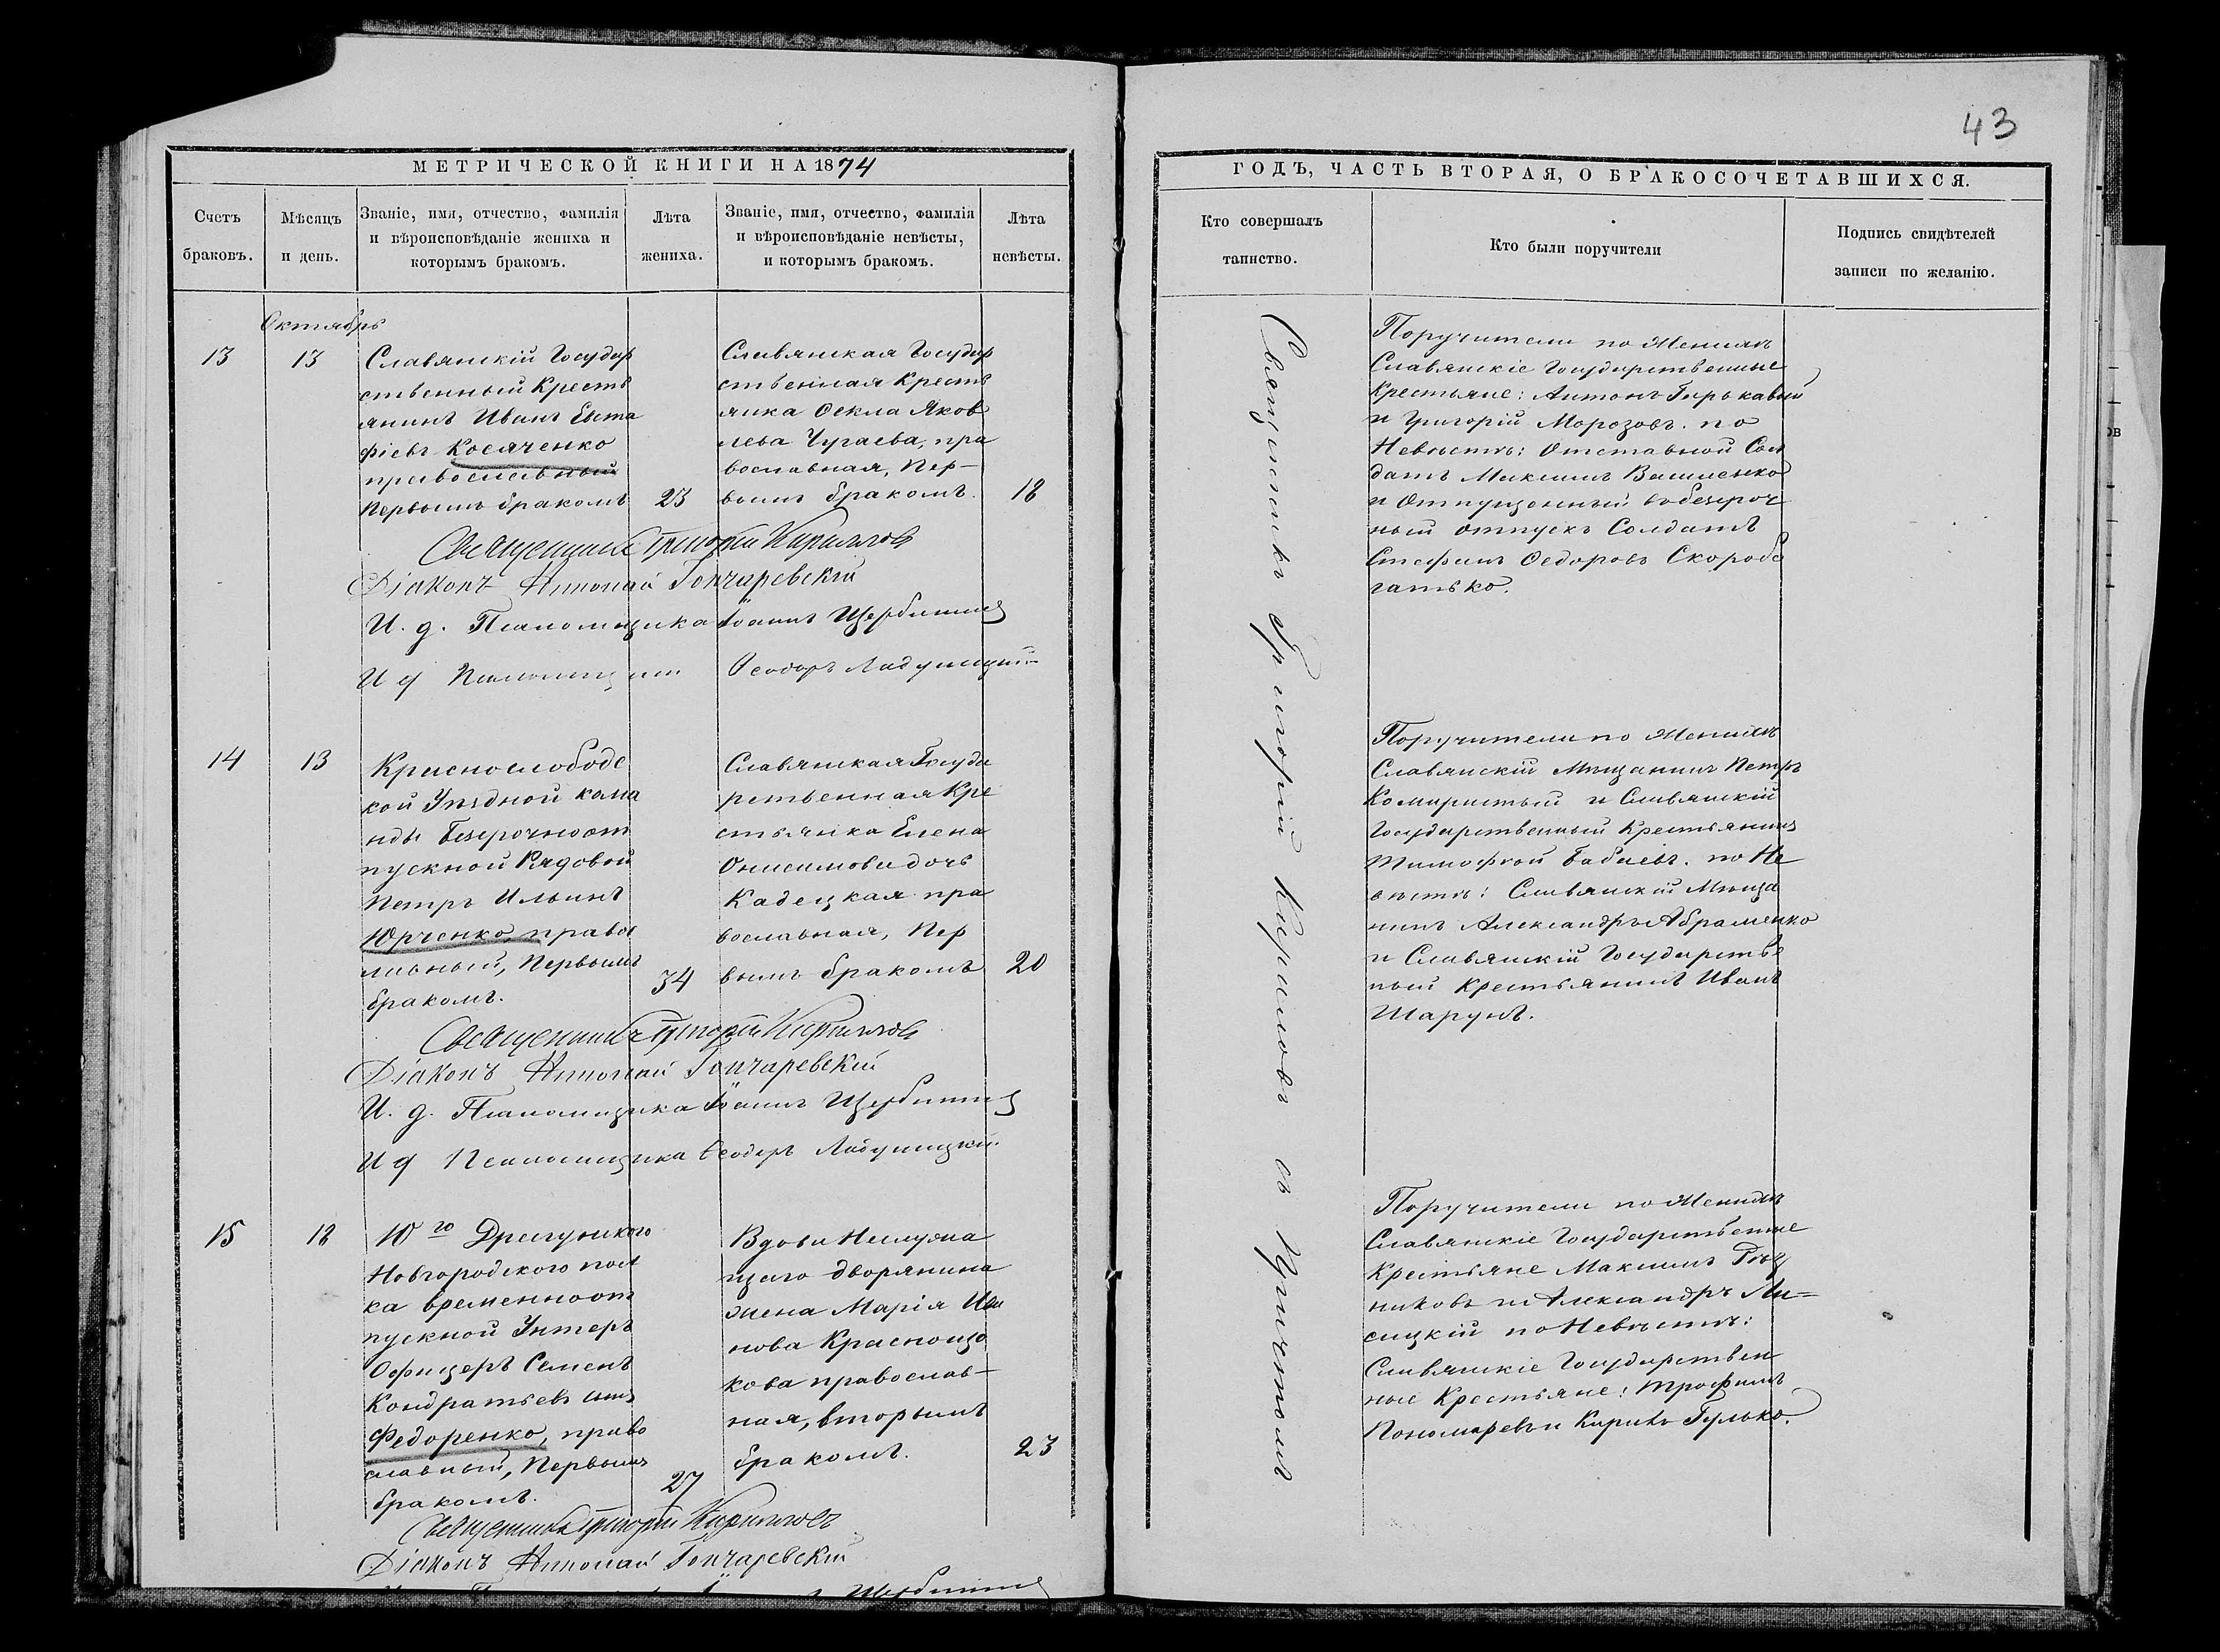 43
МЕТРИЧЕСКОЙ КНИГИ НА 1874
Счетъ браковъ.
Мѣсяцъ и день.
Званіе, имя, отчество, фамилія
и вѣроисповѣданіе жениха и
которымъ бракомъ.
Лѣта жениха.
Званіе, имя, отчество, фамилія
и вѣроисповѣданіе невѣсты,
и которымъ бракомъ.
Лѣта невѣсты.
Октябрь
13
13
Славянскій Государ
ственный Кресть
янинъ Иванъ Евста
фіевъ Косяченко
православный
Первымъ бракомъ
23
Славянская Государ
ственная Кресть
янка Ѳекла Яков
лева Чугаева, пра
вославная, Пер-
вымъ бракомъ.
18
Священникъ Григорій Кирилловъ
Діаконъ Николай Гончаревскій
И. д. Псаломщика Іоаннъ
И д Псаломщика Ѳеодоръ
14
13
Краснослободс
кой Уѣздной кома
нды безсрочноот
пускной Рядовой
Петръ Ильинъ
Юрченко, правос
лавный, Первымъ
бракомъ.
34
Славянская Госуда
рственная Кре
стьянка Елена
Онисимова дочь
Кадецкая пра
вославная, Пер
вымъ бракомъ
20
Священникъ Григорій Кирилловъ
Діаконъ Николай Гончаревскій
И. д. Псаломщика Іоаннъ
И д Псаломщика Ѳеодоръ
15
18
10го Драгунскаго
Новгородского пол
ка временноот
пускной Унтеръ
Офицеръ Семенъ
Кондратьевъ сынъ
Федоренко, право
славный, Первымъ
бракомъ.
27
Вдова
щаго дворянина
жена Марія Ива
нова Краснощо
кова православ-
ная, вторымъ
бракомъ.
23
Священникъ Григорій Кирилловъ
Діаконъ Николай Гончаревскій
ГОДЪ, ЧАСТЬ ВТОРАЯ, О БРАКОСОЧЕТАВШИХСЯ.
Кто совершалъ таинство.
Кто были поручители
Подпись свидѣтелей
записи по желанію.
Священникъ Григорій Кирилловъ съ Причтомъ
Поручители по Женихѣ
Славянскіе Государственные
Крестьяне: Антонъ Гирькавый
и Григорій Морозовъ. по
Невѣстѣ: Отставной Сол
датъ Максимъ Вашленко
и Отпущенный въ безсроч
ный отпускъ Солдатъ
Стефанъ Ѳедоровъ Скоробо
гатько.
Поручители по Женихѣ
Славянскій Мѣщанинъ Петръ
Комиристый и Славянскій
Государственный Крестьянинъ
Тимофей Бабаевъ. по Не
вѣстѣ: Славянскій Мѣща
нинъ Александръ Абраменко
и Славянскій Государстве
ный Крестьянинъ Иванъ
Шарунъ.
Поручители по Женихѣ
Славянскіе Государственные
Крестьяне Максимъ
никовъ и Александръ Ли=
сицкій по Невѣстѣ:
Славянскіе Государствен
ные Крестьяне: Трофимъ
Пономаревъ и Кирикъ Гулько.